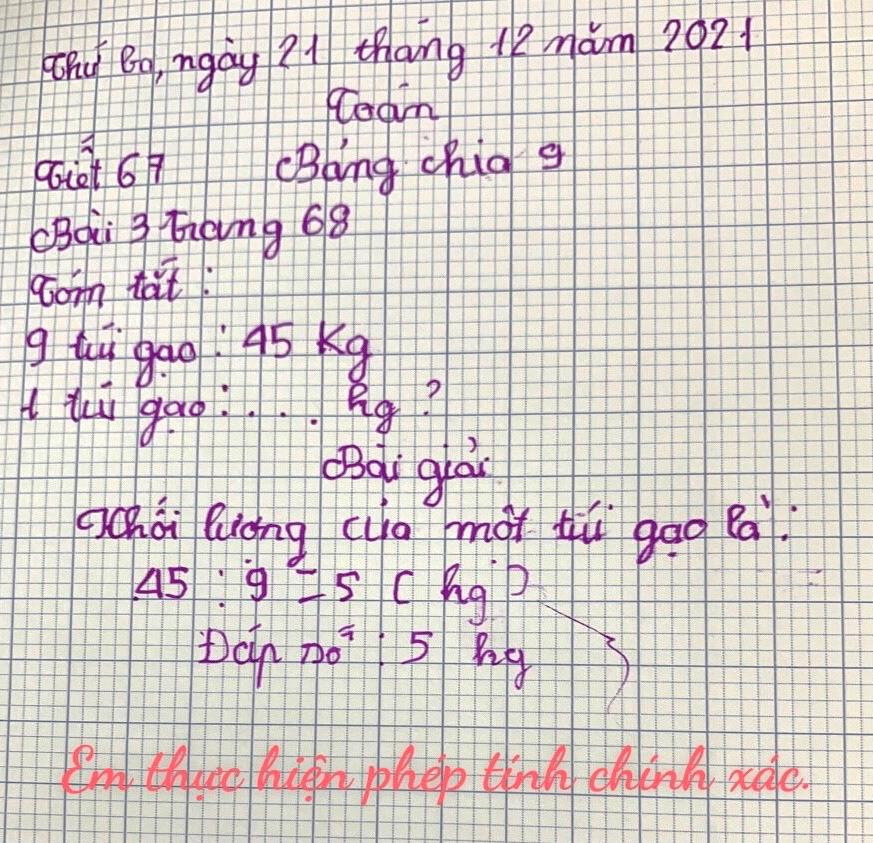 Thứ Ba, ngày 21 tháng 12 năm 2021
Toán
Tiết 67 Bảng chia 9
Bài 3 trang 68
Tóm tắt :
9 túi gạo : 45 kg
1 túi gạo : .... kg ?
Bài giải
Khối lượng của một túi gạo là :
45 : 9 = 5 ( kg )
Đáp số : 5 kg
Em thực hiện phép tính chính xác.